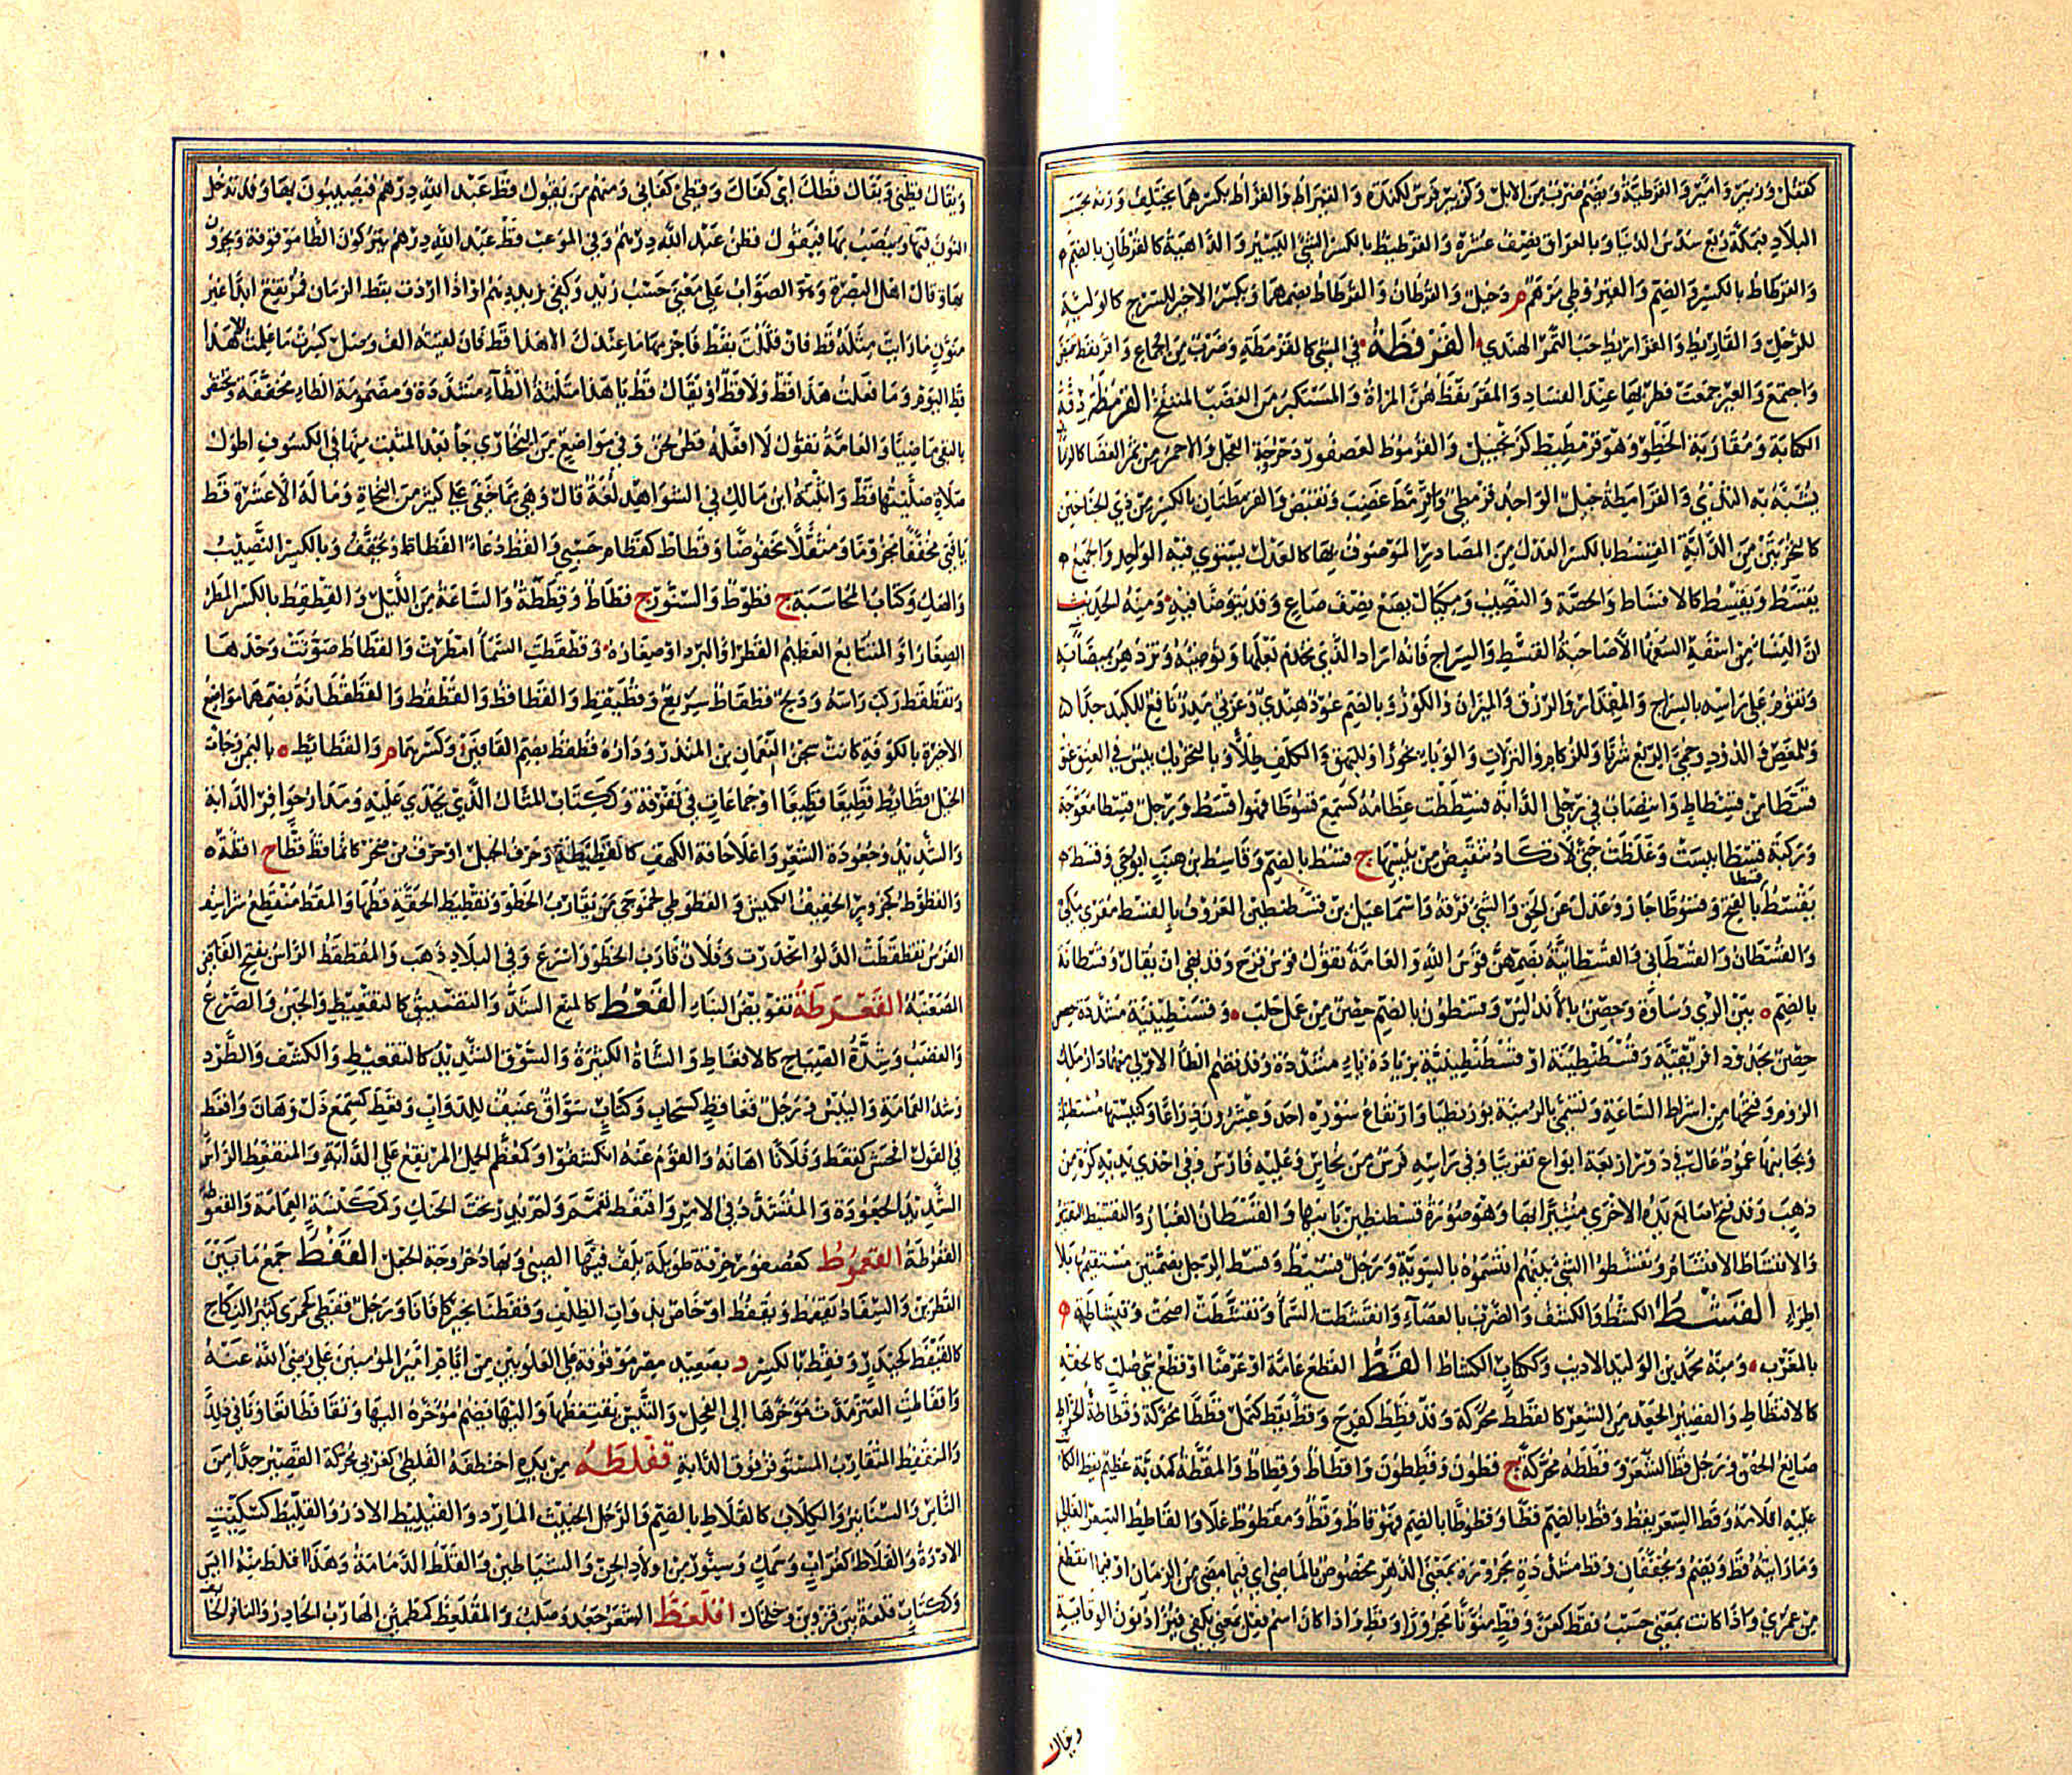 كقتل وزبير وامير والقرطية ويضم ضرب من الابل وكزبير فرس لكندة والقيراط والقراط بكسرهما يختلف وزنه بحسب
البلاد فبمكة ربع سدس الدنيا وبالعراق نصف عشره والقرطيط بالكسر الشئ اليسير والداهية كالقرطان بالضم م
والقرطاط بالكسر والضم
للرحل والقاريط والقراريط حب التمر الهندي القرفطة في المشي كالقرمطة وضرب من الجماع واقرنفط تقبض
واجتمع والعنز جمعت قطريها عند السفاد والمقرنفط هن المراة والمستكبر من الغضب المنتفخ القرمطة دقة
الكتابة ومقاربة الخطو وهو قرمطيط كزنجبيل والقرموط لعصفور دحروجة الجعل والاحمر من ثمر الغضا كالرمان
يشبه به الثدي والقرامطة جيل الواحد قرمطي واقرمط غضب وتقبض والقرمطتان بالكسر من ذي الجناحين
كالنخرتين من الدابة القسط بالكسر العدل من المصادر الموصوف بها كالعدل يستوي فيه الواحد والجميع م
يقسط ويقسط كالاقساط والحصة والنصيب ومكيال يسع نصف صاع وقد يتوضا فيه ومنه الحديث
ان النساء من اسفه السفهاء الا صاحبة القسط والسراج كانه اراد الذي تخدم بعلها وتوضئه وتزدهر بميضاته
وتقوم على راسه بالسراج والمقدار والرزق والميزان والكوز وبالضم عود هندي وعربي مدر نافع للكبد جدا
وللمغص والدود وحمى الربع شربا وللزكام والنزلات والوباء بخورا وللبهق والكلف طلاء وبالتحريك يبس في العنق عنق
قسطا من قسط وانتصاب في رجلي الدابة قسطت عظامه كسمع قسوطا فهو اقسط ورجل قسطا معوجة
وركبة قسطا يبست وغلظت حتى لا تكاد تنقبض من يبسها ج قسط بالضم وقاسط بن هنب ابو حي وقسط م
يقسط قسطا بالفتح وقسوطا جار وعدل عن الحق والشئ فرقه واسماعيل بن قسطنطين المعروف بالقسط مقرئ مكي
والقسطان والقسطاني والقسطانية بضمهن قوس الله والعامة تقول قوس قزح وقد نهي ان يقال وقسطانة
بالضم ه بين الري وساوة وحصن بالاندلس وقسطون بالضم حصن من عمل حلب وقسنطينية مشددة حصن
حصن بحدود افريقية وقسطنطينة او قسطنطينية بزيادة ياء مشددة وقد تضم الطاء الاولى منهما دار ملك
الروم وفتحها من اشراط الساعة وتسمى بالرومية بوزنطيا وارتفاع سوره احد وعشرون ذراعا وكنيستها مستطيلة
وبجانبها عمود عال في دور اربعة ابواع تقريبا وفي راسه فرس من نحاس وعليه فارس وفي احدى يديه كرة من
ذهب وقد فتح اصابع يده الاخرى مشيرا بها وهو صورة قسطنطين بانيها والقسطان الغبار والتقسيط التقتير
والاقتساط الاقتسام وتقسطوا الشئ بينهم اقتسموه بالسوية ورجل قسيط وقسط الرجل بضمتين مستقيمها بلا
اطراء القشط الكشط والكشف والضرب بالعصا وانقشطت السماء وتقشطت اصحت وقيشاطة د
بالمغرب منه محمد بن الوليد الاديب وككتاب الكشاط القط القطع عامة او عرضا او قطع شئ صلب كالحقة
كالاقتطاط والقصير الجعد من الشعر كالقطط محركة وقد قطط كفرح وقط يقط كمل قططا محركة وقطاطة الخراط
صانع الحقق ورجل قط الشعر وقططه محركة ج قطون وقططون واقطاط وقطاط والمقطة كمذبة عظيم يقط الكاتب
عليه اقلامه وقط السعر يقط وقط بالضم قطا وقطوطا بالضم فهو قاط وقط ومقطوط غلا والقاطط السعر الغالي
وما رايته قط ويضم ويخففان وقط مشددة مجرورة بمعنى الدهر مخصوص بالماضي اي فيما مضى من الزمان او فيما انقطع
من عمري واذا كانت بمعنى حسب فقط كعن وقط منونا مجرورا وقطي واذا كان اسم فعل بمعنى يكفي فتزاد نون الوقاية
ويقال
ويقال قطني ويقال قطك اي كفاك وقطي كفاني ومنهم من يقول قط عبد الله درهم فينصبون بها وقد تدخل
النون فيها وينصب بها فيقول قطن عبد الله درهم وفي الموعب قط عبد الله درهم يتركون الطا موقوفة ويجرون
بها وقال اهل البصرة وهو الصواب على معنى حسب زيد وكفي زيد درهم او اذا اردت بقط الزمان فمرتفع ابدا غير
منون ما رايت مثله قط فان قللت بقط فاجزمها ما عندك الا هذا قط فان لقيته الف وصل كسرت ما علمت الا هذا
قط اليوم وما فعلت هذا قط ولا قط او يقال قط يا هذا مثلثة الطاء مشددة ومضمومة الطاء مخففة وتختص
بالنفي ماضيا والعامة تقول لا افعله قط لحن وفي مواضع من البخاري جا بعد المثبت منها في الكسوف اطول
صلاة صليتها قط واثبته ابن مالك في الشواهد لغة قال وهي مما خفي على كثير من النحاة وما له الا عشرة قط
يا فتى مخففا مجزوما ومثقلا مخفوضا وقطاط كقطام حسبي والقط دعاء القطاة ويخفف وبالكسر النصيب
والصك وكتاب المحاسبة ج قطوط والسنور ج قطاط وقططة والساعة من الليل والقطقط بالكسر المطر
الصغار او المتتابع العظيم القطر او البرد او صغاره وقطقطت السماء امطرت والقطاط صوتت وحدها
وتقطقط ركب راسه ودلج قطقاط سريع وقطيقط والقطاقط والقطقط والقطقطانة بضمهما مواضع
الاخيرة بالكوفة كانت سجن النعمان بن المنذر ودارة قطقط بضم القافين وكسرهما م والقطائط ه باليمن وجات
الخيل قطائط قطيعا قطيعا او جماعات في تفرقة وككتاب المثال الذي يحذي عليه ومدار حوافر الدابة
والشديد وجعودة الشعر واعلا حافة الكهف كالقطيطة وحرف الجبل او حرف من صخر كانما قط قطا ج اقطة
والقطوط كجزور الخفيف الكميش والقطوطي كخجوجي من يقارب الخطو وتقطيط الحقة قطها والمقط منقطع شراسيف
الفرس تقطقطت الدلو انحدرت وفلان قارب الخطو واسرع وفي البلاد ذهب والمقطقط الراس بفتح القافين
الصعنبه القعرطة تقويض البناء القعط كالمنع الشد والتضييق كالتقعيط والجبن والصرع
والغضب وشدة الصياح كالاقعاط والشاة الكثيرة والسوق الشديد كالتقعيط والكشف والطرد
وشد العمامة واليبس ورجل قعاط كسحاب وكتاب سواق عنيف للدواب وقعط كسمع ذل وهان واقعط
في القول افحش كقعط وفلانا اهانه والقوم عنه انكشفوا وكمعظم الحمل المرتفع على الدابة والمتقعط الراس
الشديد الجعودة والمتشدد في الامر واقتعط تعمم ولم يدر تحت الحنك وكمكنسة العمامة والقعوطة
القعرطة القعموط كعصفور خرقة طويلة يلف فيها الصبي وبهاء دحروجة الجعل القفط جمع ما بين
القطرين والسفاد يقفط ويقفط او خاص بذوات الظلف وقفطنا بخير كافانا ورجل قفطي كجمزي كثير النكاح
كالقيفط كحيدر وقفط بالكسر د بصعيد مصر موقوفة على العلويين من ايام امير المؤمنين علي رضي الله عنه
واقفالت العنز مدت مؤخرها الى الفحل والتيس يقتفطها واليها يضم مؤخره اليها وتقافطا تعاونا في ذلك
والمقفط المتقارب المستوفز فوق الدابة قفلطه من يده اختطفه القلطي كعربي محركة القصير جدا من
الناس والسنانير والكلاب كالقلاط بالضم والرجل الخبيث المارد والقيليط الادر والقليط كسكيت
الادرة والقلاط كغراب وسمك وسنور من اولاد الجن والشياطين والقلط الدمامة وهذا اقلط منه آيس
وككتاب قلعة بين قزوين وخلخال اقلعط الشعر جعد وصلب والمقلعط كمطمئن الهارب الحاذر والنافر الخائف